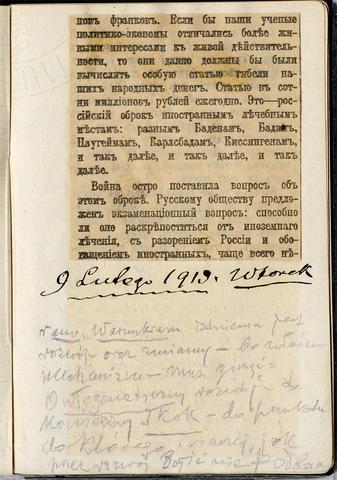 новъ франковъ. Если бы наши ученые
политико-экономы отличались болѣе жи-
выми интересами къ живой дѣйствитель-
ности, то они давно должны бы были
вычислить особую статью гибели на-
шихъ народныхъ денегъ. Статью въ сот-
ни милліоновъ рублей ежегодно. Это—рос-
сійскій оброкъ иностраннымъ лѣчебнымъ
мѣстамъ: разнымъ Баденамъ, Бадамъ,
Наугеймамъ, Карлсбадамъ, Киссингенамъ,
и такъ далѣе, и такъ далѣе, и такъ
далѣе.
Война остро поставила вопросъ объ
этомъ оброкѣ. Русскому обществу предло-
женъ экзаменаціонный вопросъ: способно
ли оно раскрѣпоститься отъ иноземнаго
лѣченія, съ разореніемъ Россіи и обо-
гащеніемъ иностранныхъ, чаще всего нѣ-
9 Lutego 1915. Wtorek
Warunkiem jest
rozwój oraz zmiany –
Mechanizm – musi
Ontogenetyczny rozwój do
skok – do punktu
do którego
przez rozwój